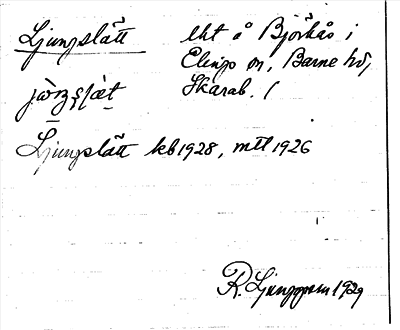 Ljungslätt lht å Björkås i
Elings sn, Barne hd,
Skarab. l
Ljungslätt kb 1928, mtl 1926
R. Ljunggren 1929